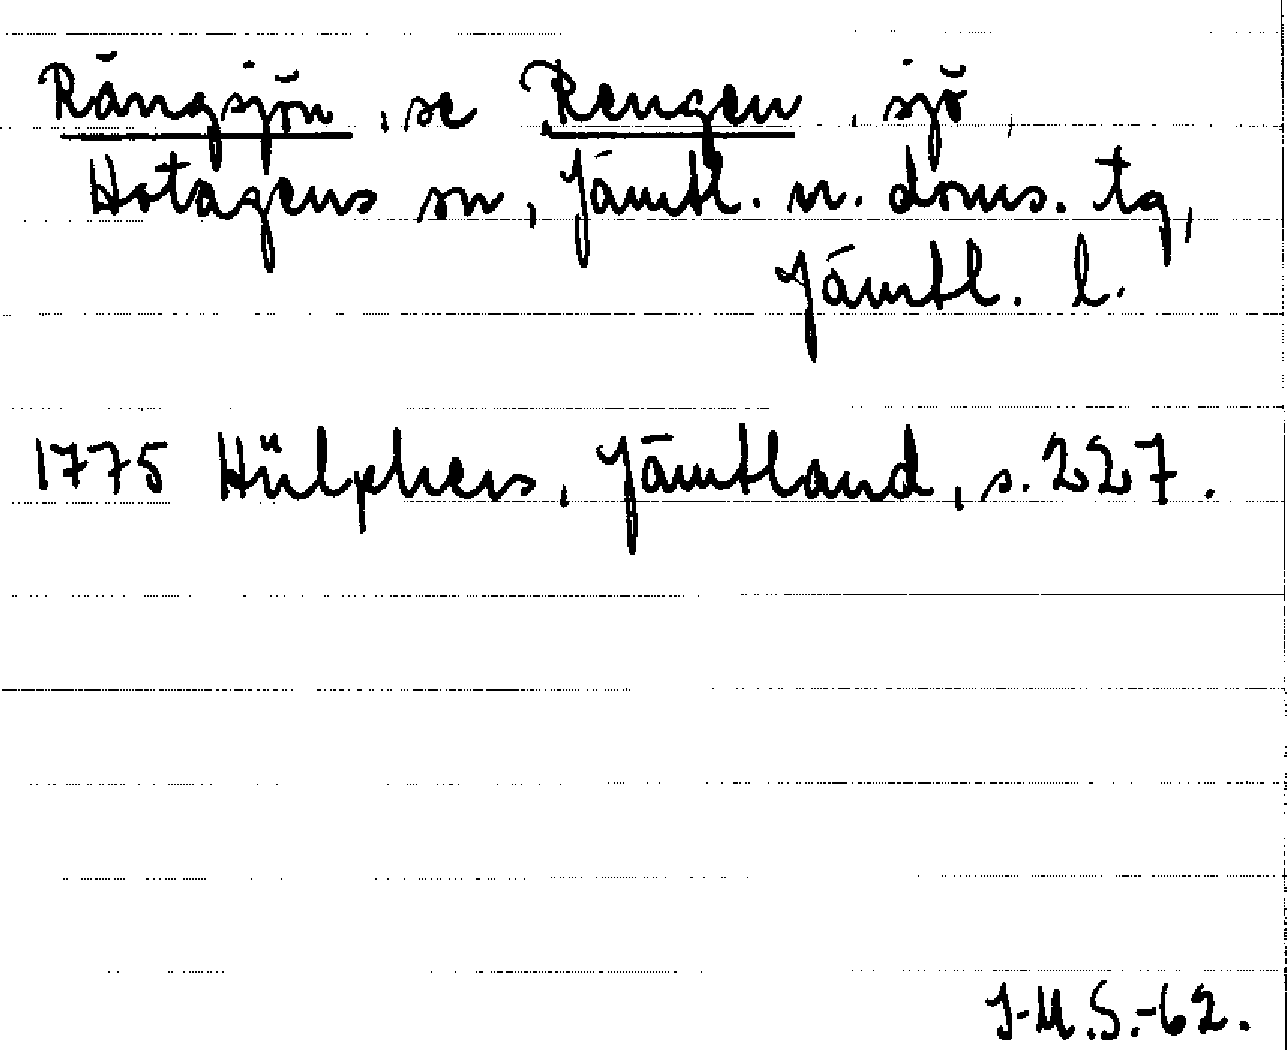 Rängsjön, se Rengen, sjö,
Hotagens sn, Jämtl. n. doms. tg,
Jämtl. l.
1775 Hülphers, Jämtland, s. 227.
I-M.S.-62.